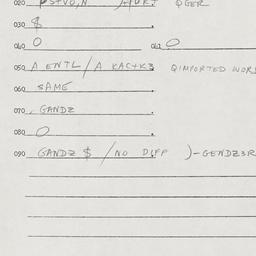 020 QGER
030 $
040 0 041 0
050 A ENTL / A KAC+K3 QIMPORTED WOR
060 SAME
070 GANDZ
080 0
090 GANDZ $ / NO DIFF )-GENDZ3R